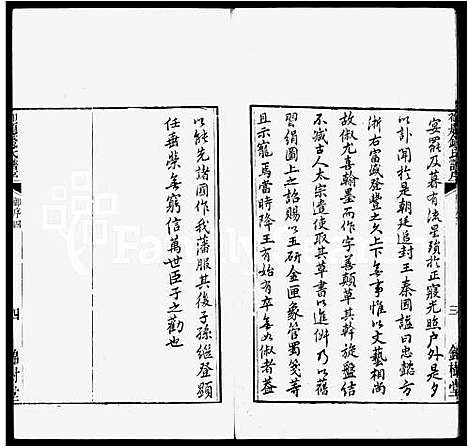 宴罷及暮有流星殞於正寢光照戶外是夕
以訃聞於是朝廷追封王秦國謚曰忠懿方
淛右富盛登豐之久上下無事惟以文藝相尚
故俶尤喜翰墨而作字善顛草其斡旋盤結
不減古人太宗遣使取其草書以進俶乃以舊
習絹圖上之詔賜以玉研金匣象管蜀箋等
且示寵焉當時降王方始有卒無如俶者蓋
三
以能先諸國作我藩服其後子孫繼登顯
任垂榮無窮信萬世臣子之勸也
御序四
四